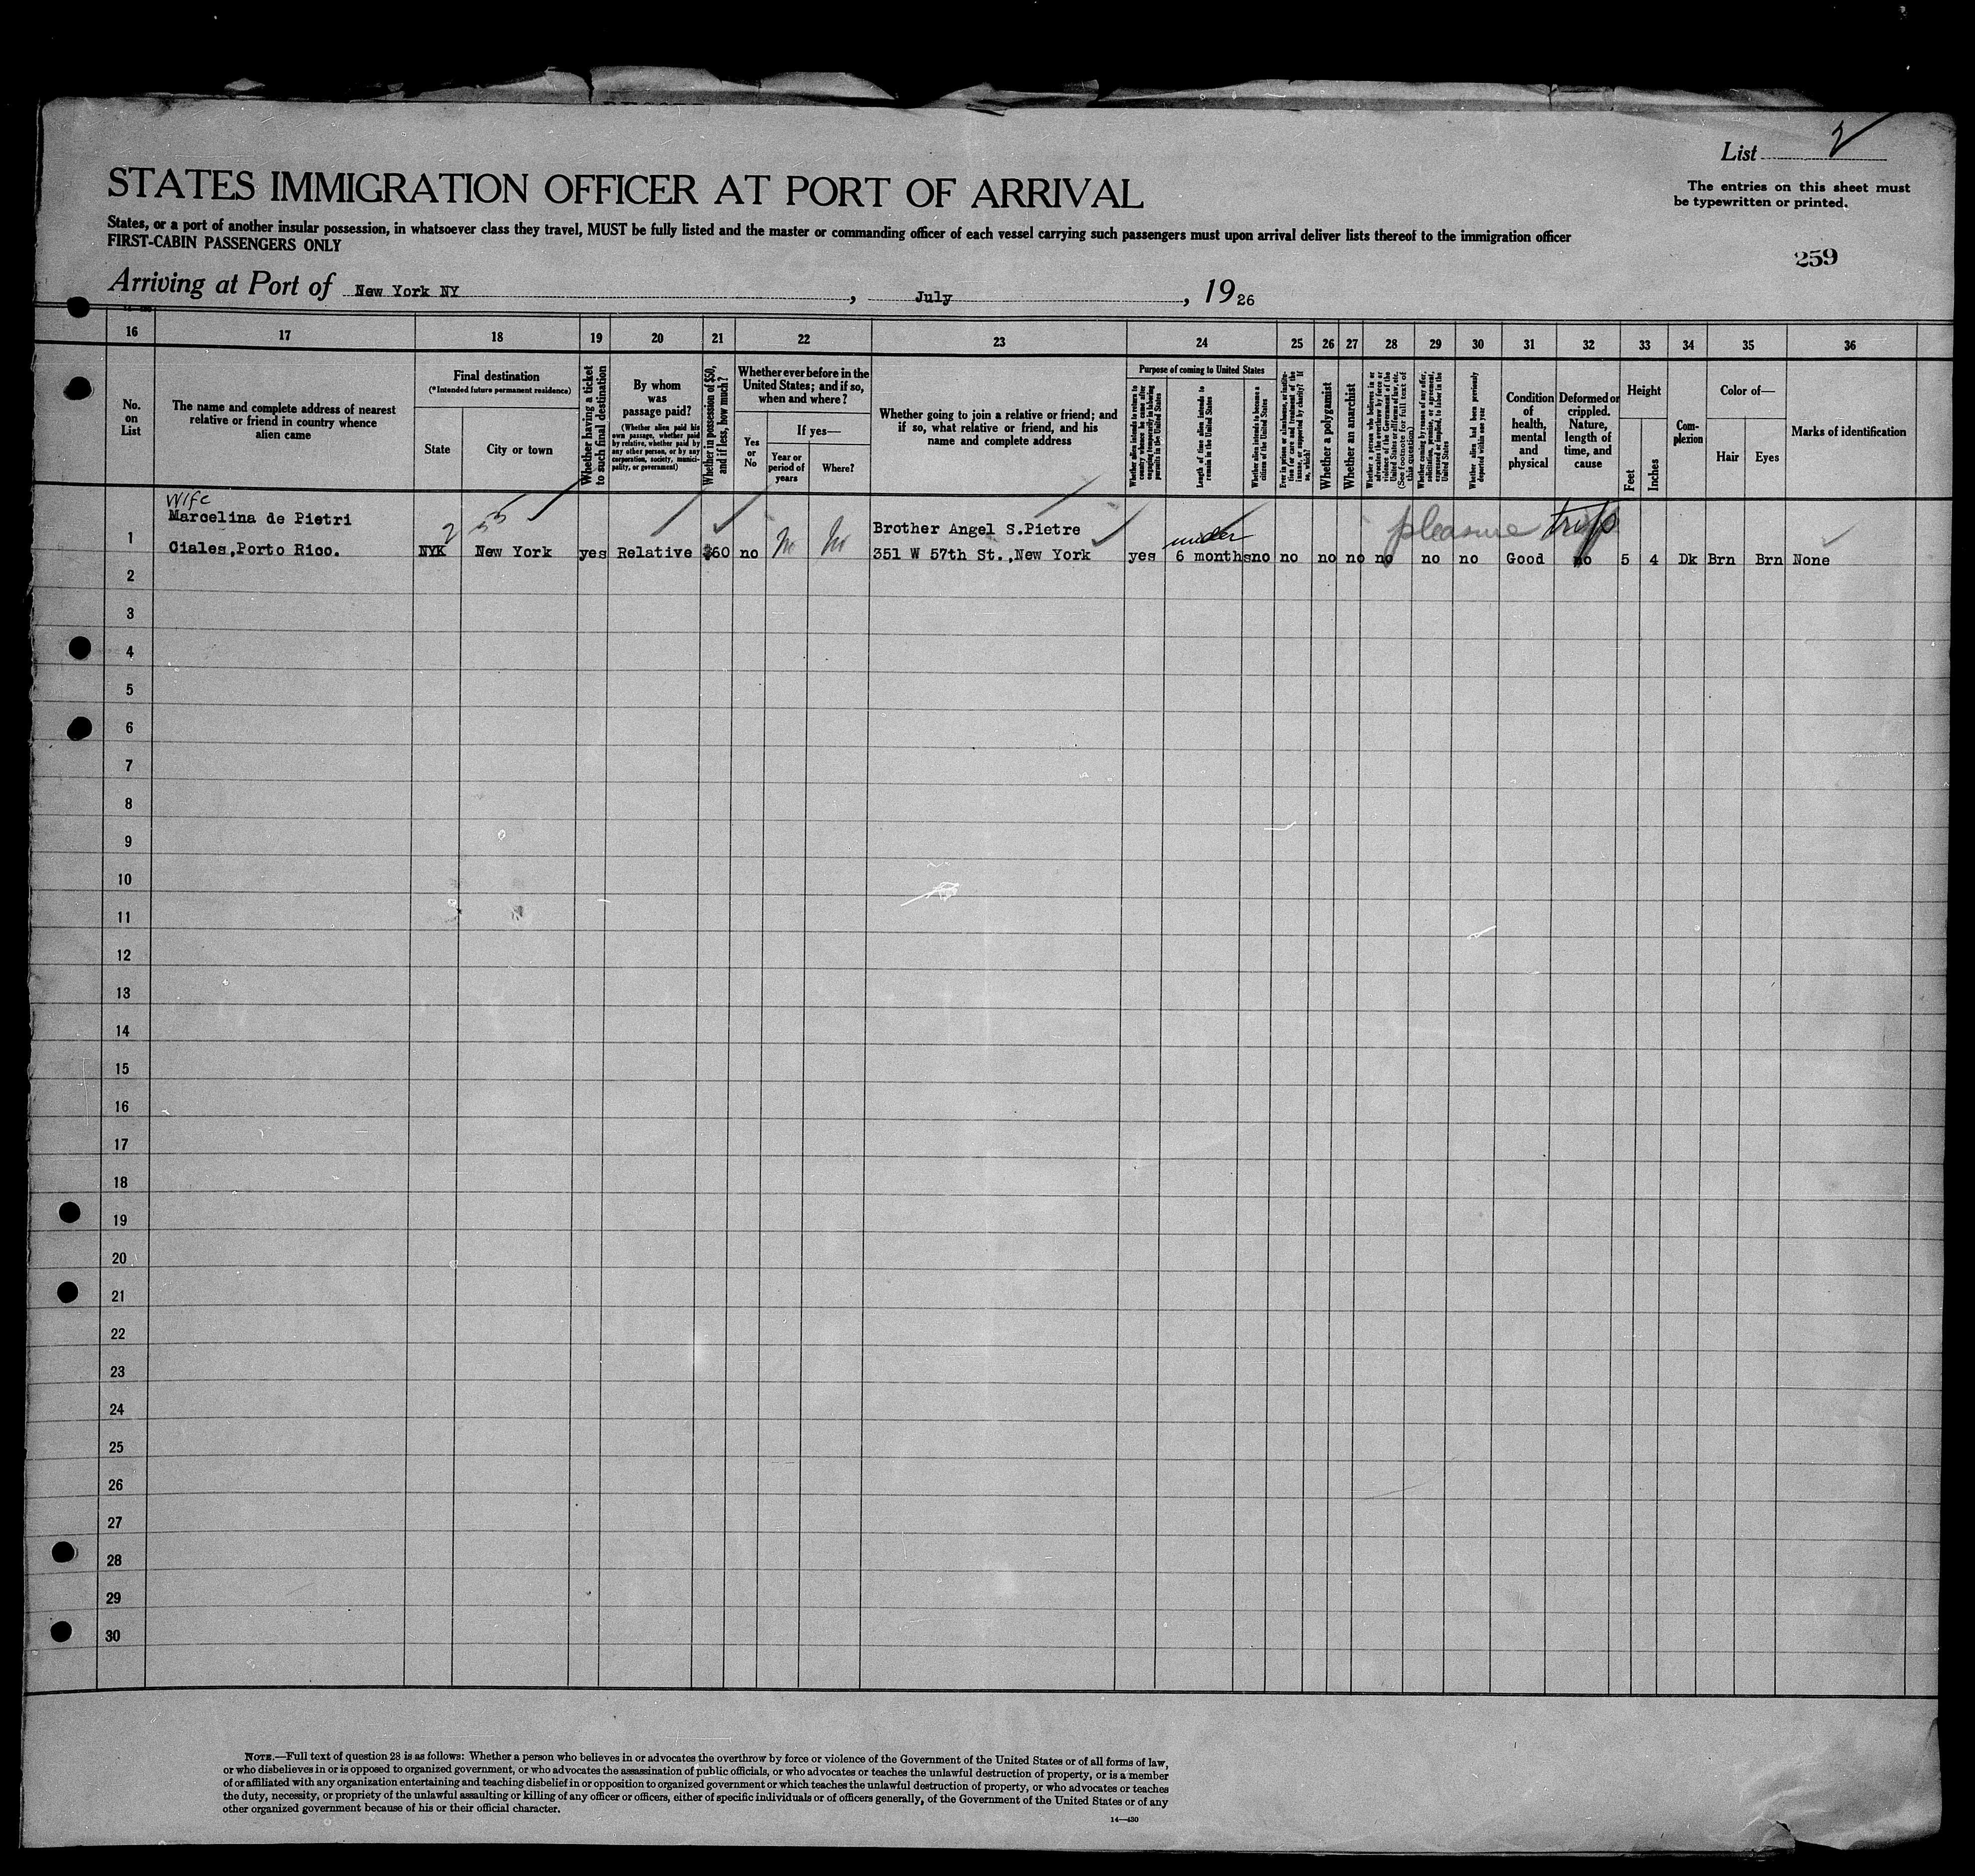 List 2
STATES IMMIGRATION OFFICER AT PORT OF ARRIVAL
The entries on this sheet must
be typewritten or printed.
States, or a port of another insular possession, in whatsoever class they travel, MUST be fully listed and the master or commanding officer of each vessel carrying such passengers must upon arrival deliver lists thereof to the immigration officer
FIRST-CABIN PASSENGERS ONLY
259
Arriving at Port of New York NY, July, 1926
16 17 18 19 20 21 22 23 24 25 26 27 28 29 30 31 32 33 34 35 36
No.
on
List
The name and complete address of nearest
relative or friend in country whence
alien came
Final destination
(*Intended future permanent residence)
State
City or town
Whether having a ticket
to such final destination
By whom
was
passage paid?
(Whether alien paid his
own passage, whether paid
by relative, whether paid by
any other person, or by any
corporation, society, munici-
pality, or government)
Whether in possession of $50,
and if less, how much?
Whether ever before in the
United States; and if so,
when and where?
Yes
or
No
If yes—
Year or
period of
years
Where?
Whether going to join a relative or friend; and
if so, what relative or friend, and his
name and complete address
Purpose of coming to United States
Whether alien intends to return to
country whence he came after
engaging temporarily in laboring
pursuits in the United States
Length of time alien intends to
remain in the United States
Whether alien intends to become a
citizen of the United States
Ever in prison or almshouse, or institu-
tion for care and treatment of the
insane, or supported by charity? If
so, which?
Whether a polygamist
Whether an anarchist
Whether a person who believes in or
advocates the overthrow by force or
violence of the Government of the
United States or all forms of law, etc.
(See footnote for full text of
this question)
Whether coming by reason of any offer,
solicitation, promise, or agreement,
expressed or implied, to labor in the
United States
Whether alien had been previously
deported within one year
Condition
of
health,
mental
and
physical
Deformed or
crippled.
Nature,
length of
time, and
cause
Height
Feet
Inches
Com-
plexion
Color of—
Hair
Eyes
Marks of identification
Wife
Marcelina de Pietri
2 53
Brother Angel S.Pietre
under
pleasure trip
1
Ciales,Porto Rico. NYK New York yes Relative $60 no No No 351 W 57th St.,New York yes 6 months no no no no no no no Good no 5 4 Dk Brn Brn None
2
3
4
5
6
7
8
9
10
11
12
13
14
15
16
17
18
19
20
21
22
23
24
25
26
27
28
29
30
NOTE.—Full text of question 28 is as follows: Whether a person who believes in or advocates the overthrow by force or violence of the Government of the United States or of all forms of law,
or who disbelieves in or is opposed to organized government, or who advocates the assassination of public officials, or who advocates or teaches the unlawful destruction of property, or is a member
of or affiliated with any organization entertaining and teaching disbelief in or opposition to organized government or which teaches the unlawful destruction of property, or who advocates or teaches
the duty, necessity, or propriety of the unlawful assaulting or killing of any officer or officers, either of specific individuals or of officers generally, of the Government of the United States or of any
other organized government because of his or their official character.
14—430